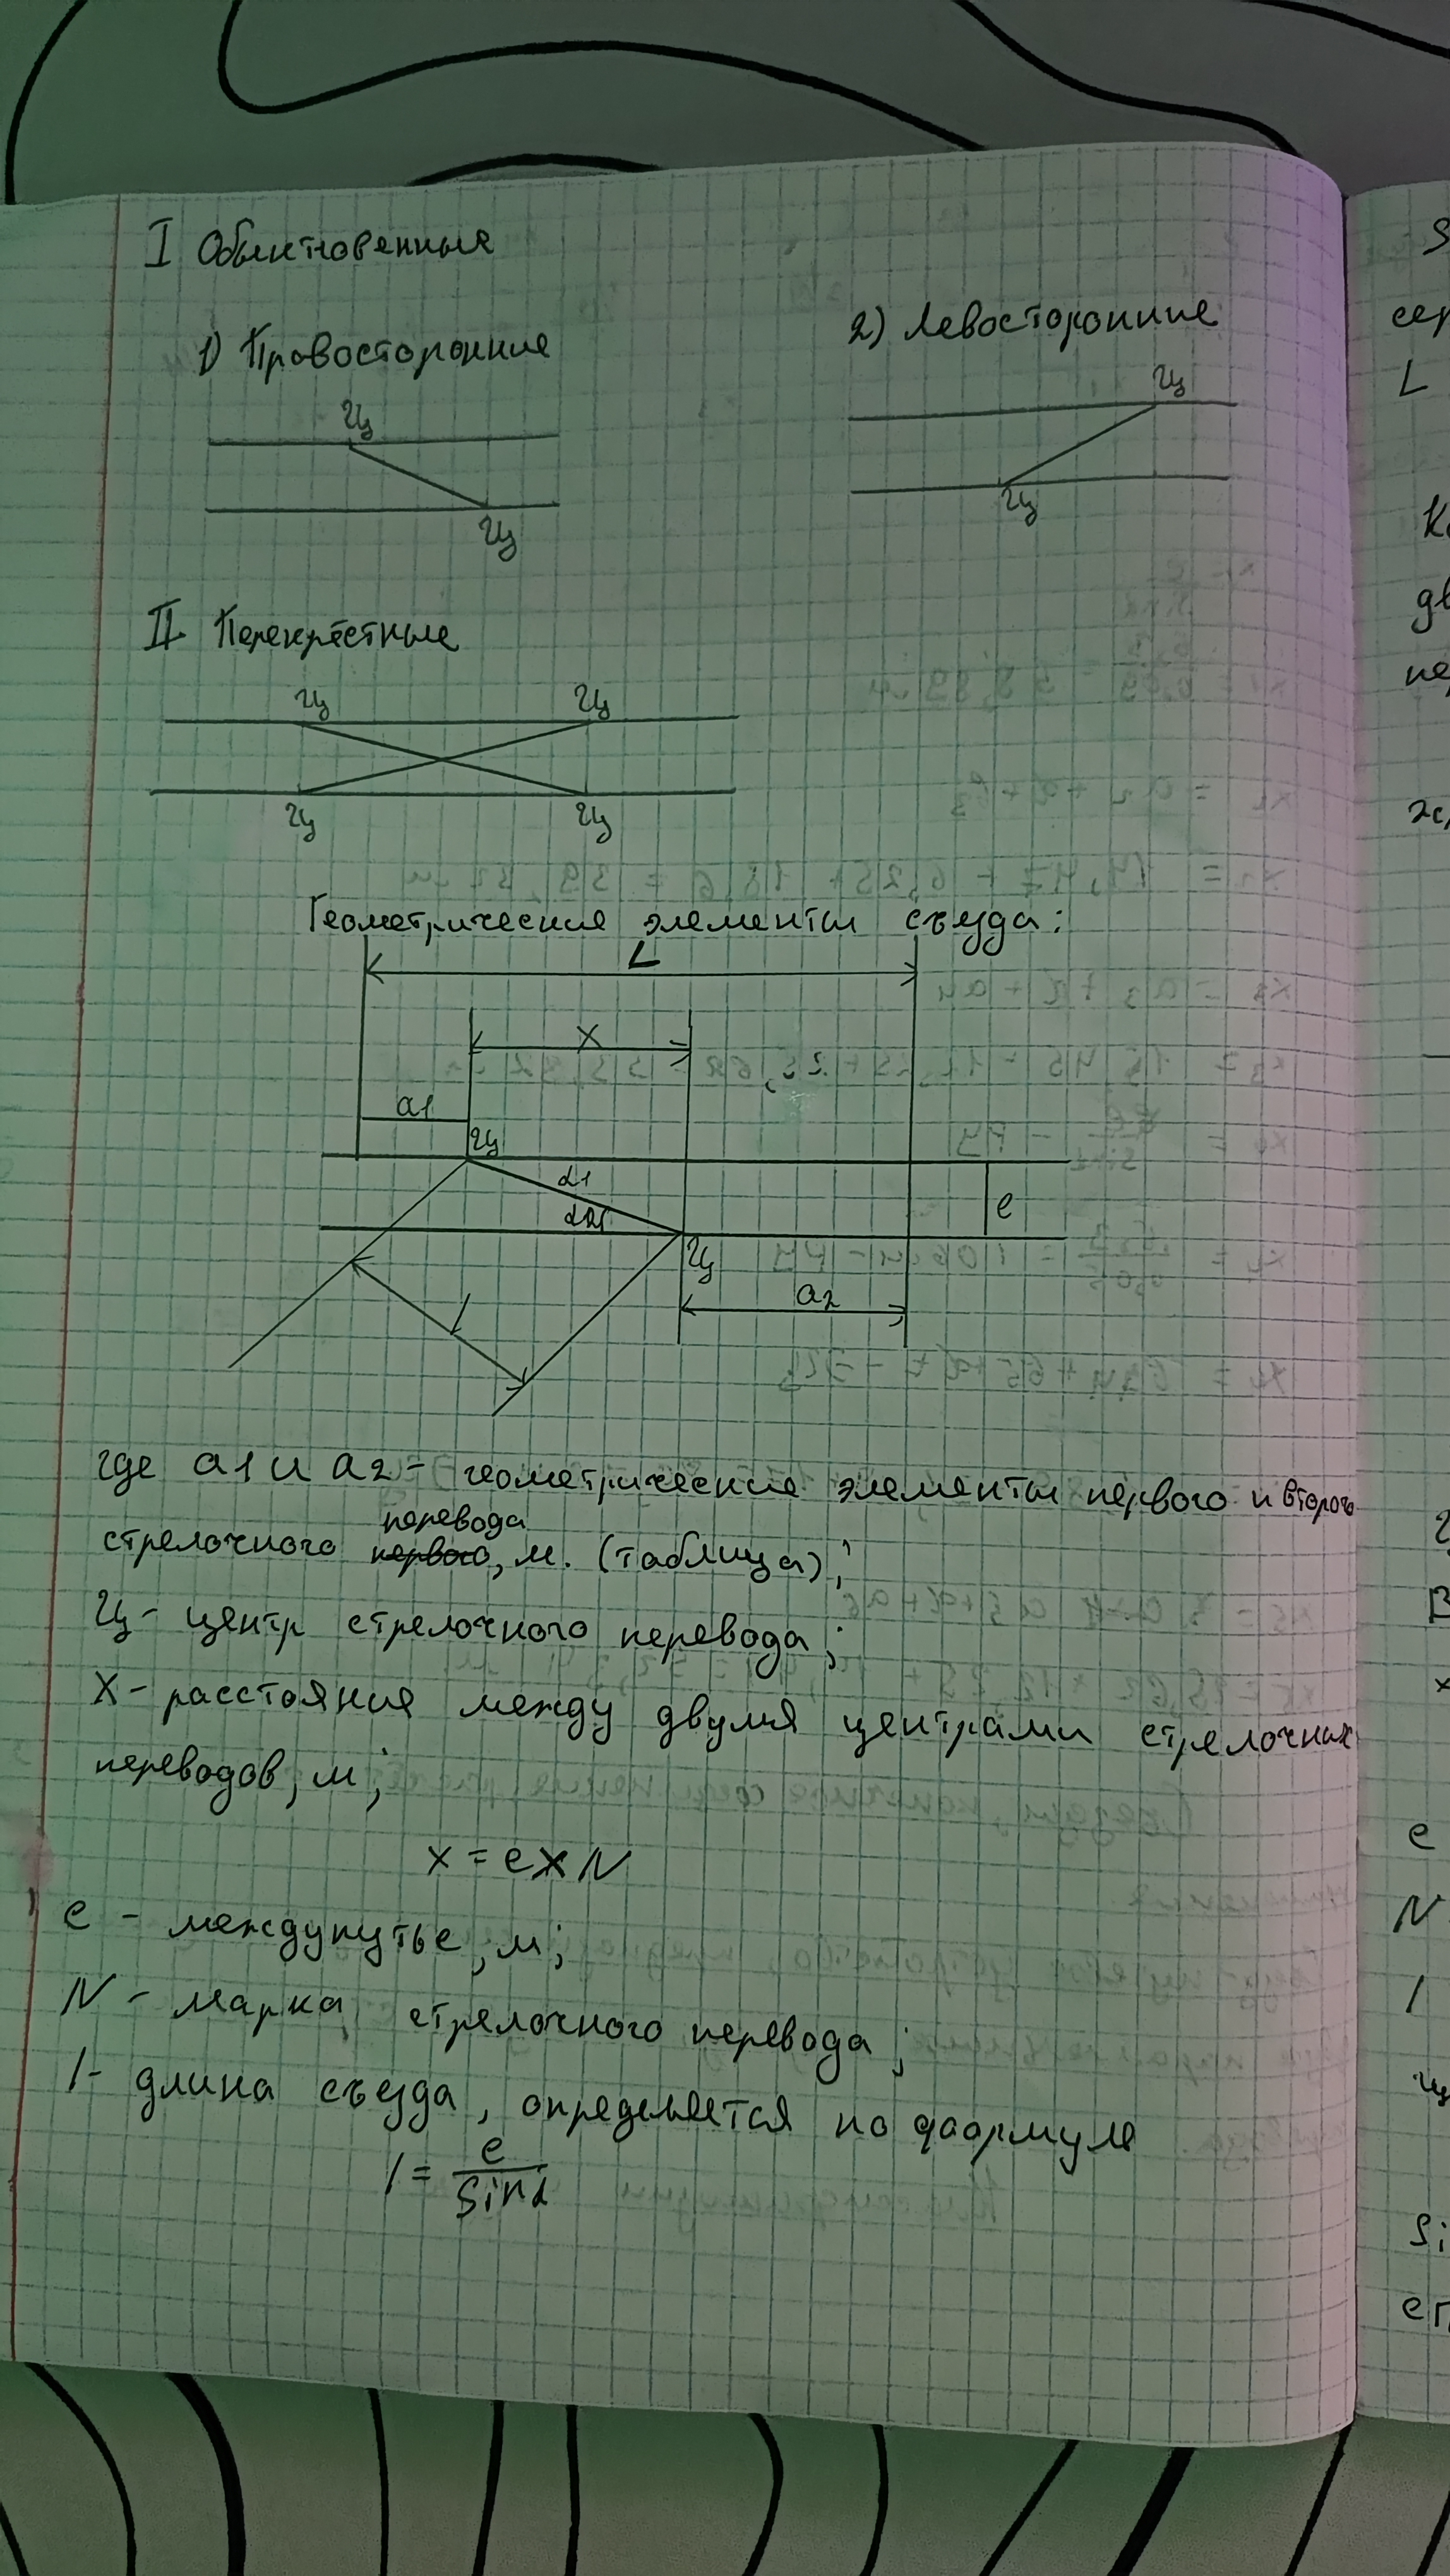 I Обыкновенные
1) Правосторонние
2) Левосторонние
ЦЦ
ЦЦ
ЦЦ
ЦЦ
II Перекрёстные
ЦЦ ЦЦ
ЦЦ ЦЦ
Геометрические элементы съезда:
L
X
a1
ЦЦ
α1
α2
e
ЦЦ
a2
l
где a1 и a2 - геометрические элементы первого и второго
перевода
стрелочного первого, м. (таблица);
ЦЦ - центр стрелочного перевода;
X - расстояние между двумя центрами стрелочных
переводов, м;
x = e x N
e - междупутье, м;
N - марка стрелочного перевода;
l - длина съезда, определяется по формуле
l = e / Sinα